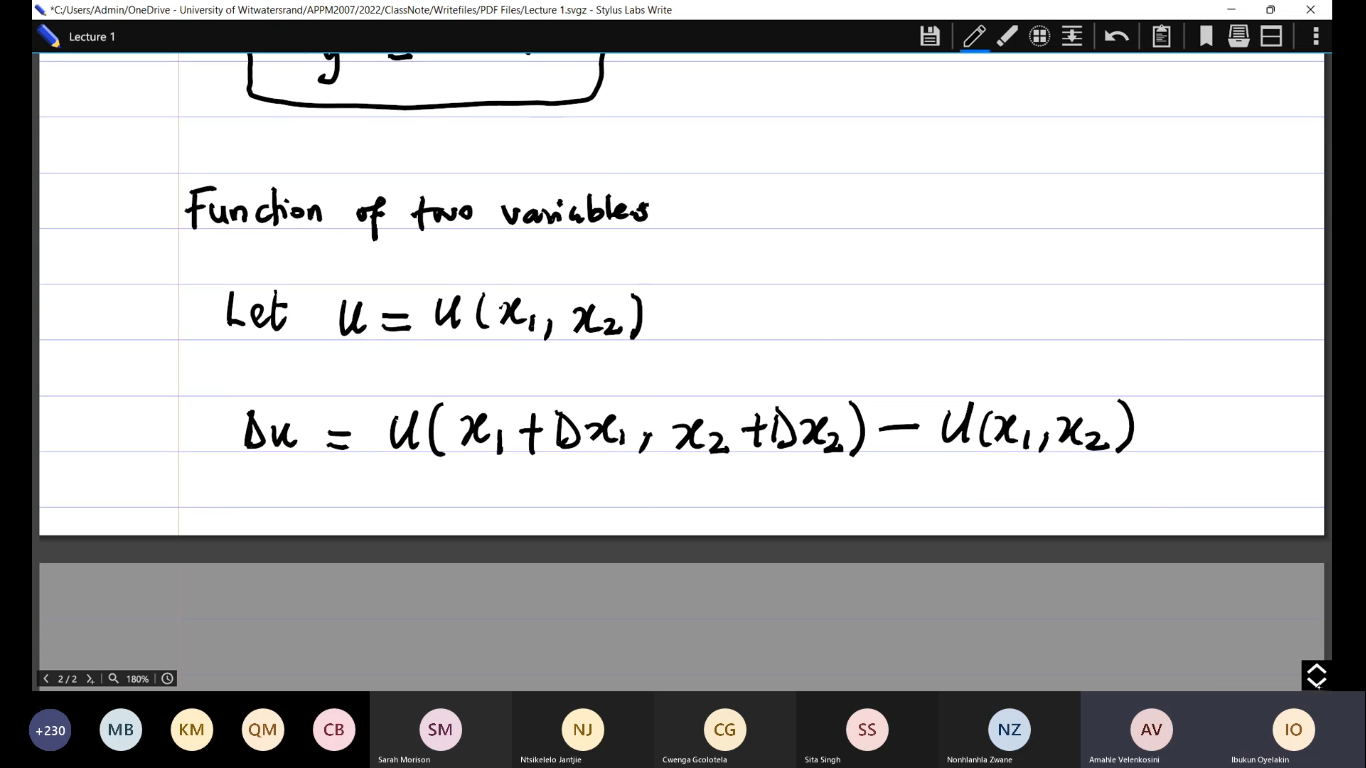 *C:/Users/Admin/OneDrive - University of Witwatersrand/APPM2007/2022/ClassNote/Writefiles/PDF Files/Lecture 1.svgz - Stylus Labs Write
Lecture 1
y =
Function of two variables
Let u = u(x₁, x₂)
Δu = u(x₁+Δx₁, x₂+Δx₂) − u(x₁,x₂)
2/2 180%
+230 MB KM QM CB SM NJ CG SS NZ AV IO
Sarah Morison Ntsikelelo Jantjie Cwenga Gcolotela Sita Singh Nonhlanhla Zwane Amahle Velenkosini Ibukun Oyelakin